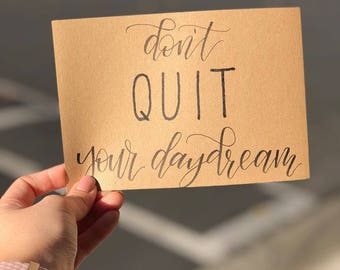 don't
QUIT
your daydream